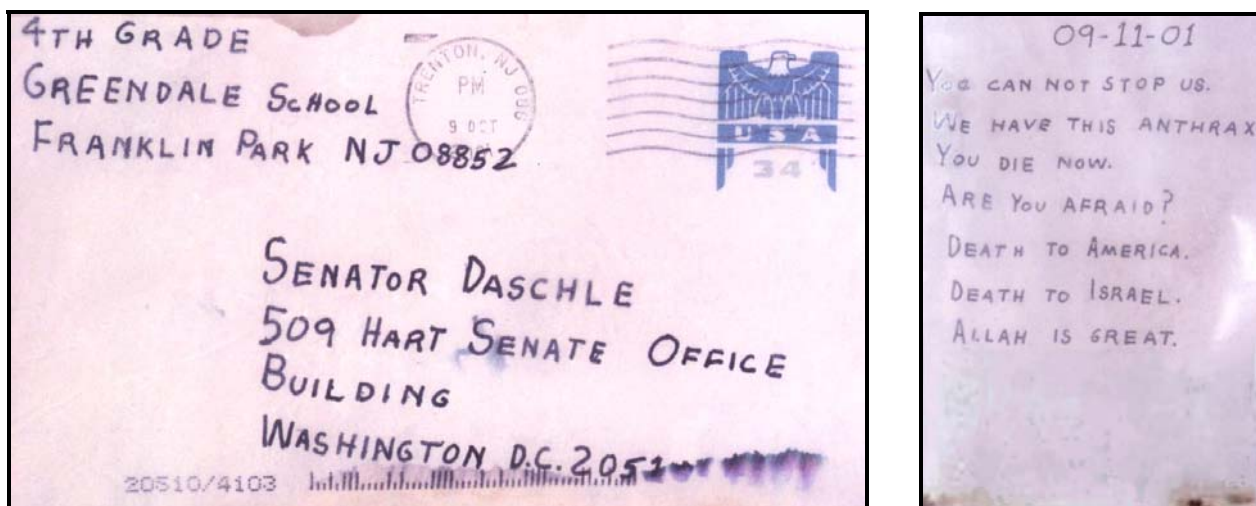 4TH GRADE
GREENDALE SCHOOL
FRANKLIN PARK NJ 08852
TRENTON, NJ
PM
9 OCT
USA
34
SENATOR DASCHLE
509 HART SENATE OFFICE
BUILDING
WASHINGTON D.C. 2051
20510/4103
09-11-01
YOU CAN NOT STOP US.
WE HAVE THIS ANTHRAX
YOU DIE NOW.
ARE YOU AFRAID?
DEATH TO AMERICA.
DEATH TO ISRAEL.
ALLAH IS GREAT.